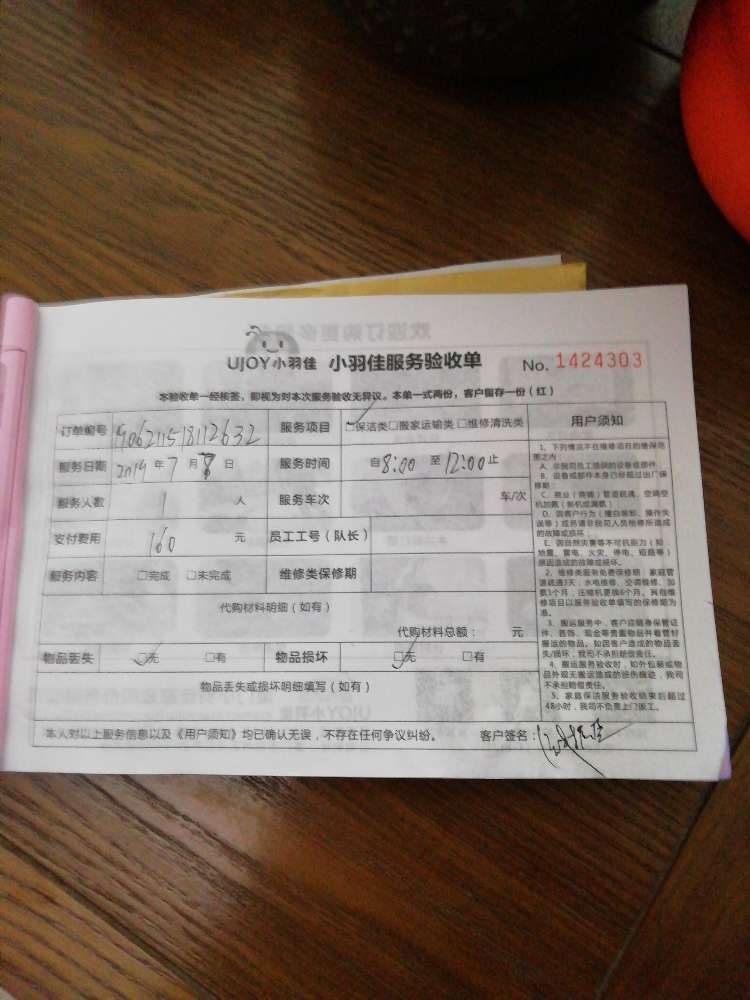 UJOY小羽佳 小羽佳服务验收单 No. 1424303
本验收单一经核签，即视为对本次服务验收无异议。本单一式两份，客户留存一份（红）
订单编号 服务项目 □保洁类□搬家运输类□维修清洗类 用户须知
服务日期 2019年7月8日 服务时间 自8:00至12:00止
服务人数 1 人 服务车次 车/次
支付费用 160 元 员工工号（队长）
服务内容 □完成 □未完成 维修类保修期
代购材料明细（如有）
代购材料总额： 元
物品丢失 □无 □有 物品损坏 □无 □有
物品丢失或损坏明细填写（如有）
本人对以上服务信息以及《用户须知》均已确认无误，不存在任何争议纠纷。 客户签名：
1、下列情况不在维修项目的维保范
围之内：
A、非我司员工维修的设备或部件
B、设备或部件本身已经超过出厂保
修期
D、因客户行为（擅自装卸、操作失
误等）或另请非我司人员检修所造成
的故障或损坏。
E、因自然灾害等不可抗能力（如：
地震、雷电、火灾、停电、短路等）
原因造成的故障或损坏。
2、维修类服务免费保修期：家庭管
道疏通3天；水电维修、空调维修、加
氟3个月；压缩机更换6个月。其他维
修项目以服务验收单填写的保修期为
准。
3、搬运服务中，客户应随身保管证
件、首饰、现金等贵重物品并看管好
搬运的物品。如因客户造成的物品丢
失/损坏，我司不承担赔偿责任。
4、搬运服务验收时，如外包装或物
品外观无搬运造成的损伤痕迹，我司
不承担赔偿责任。
5、家庭保洁服务验收结束后超过
48小时，我司不负责上门返工。